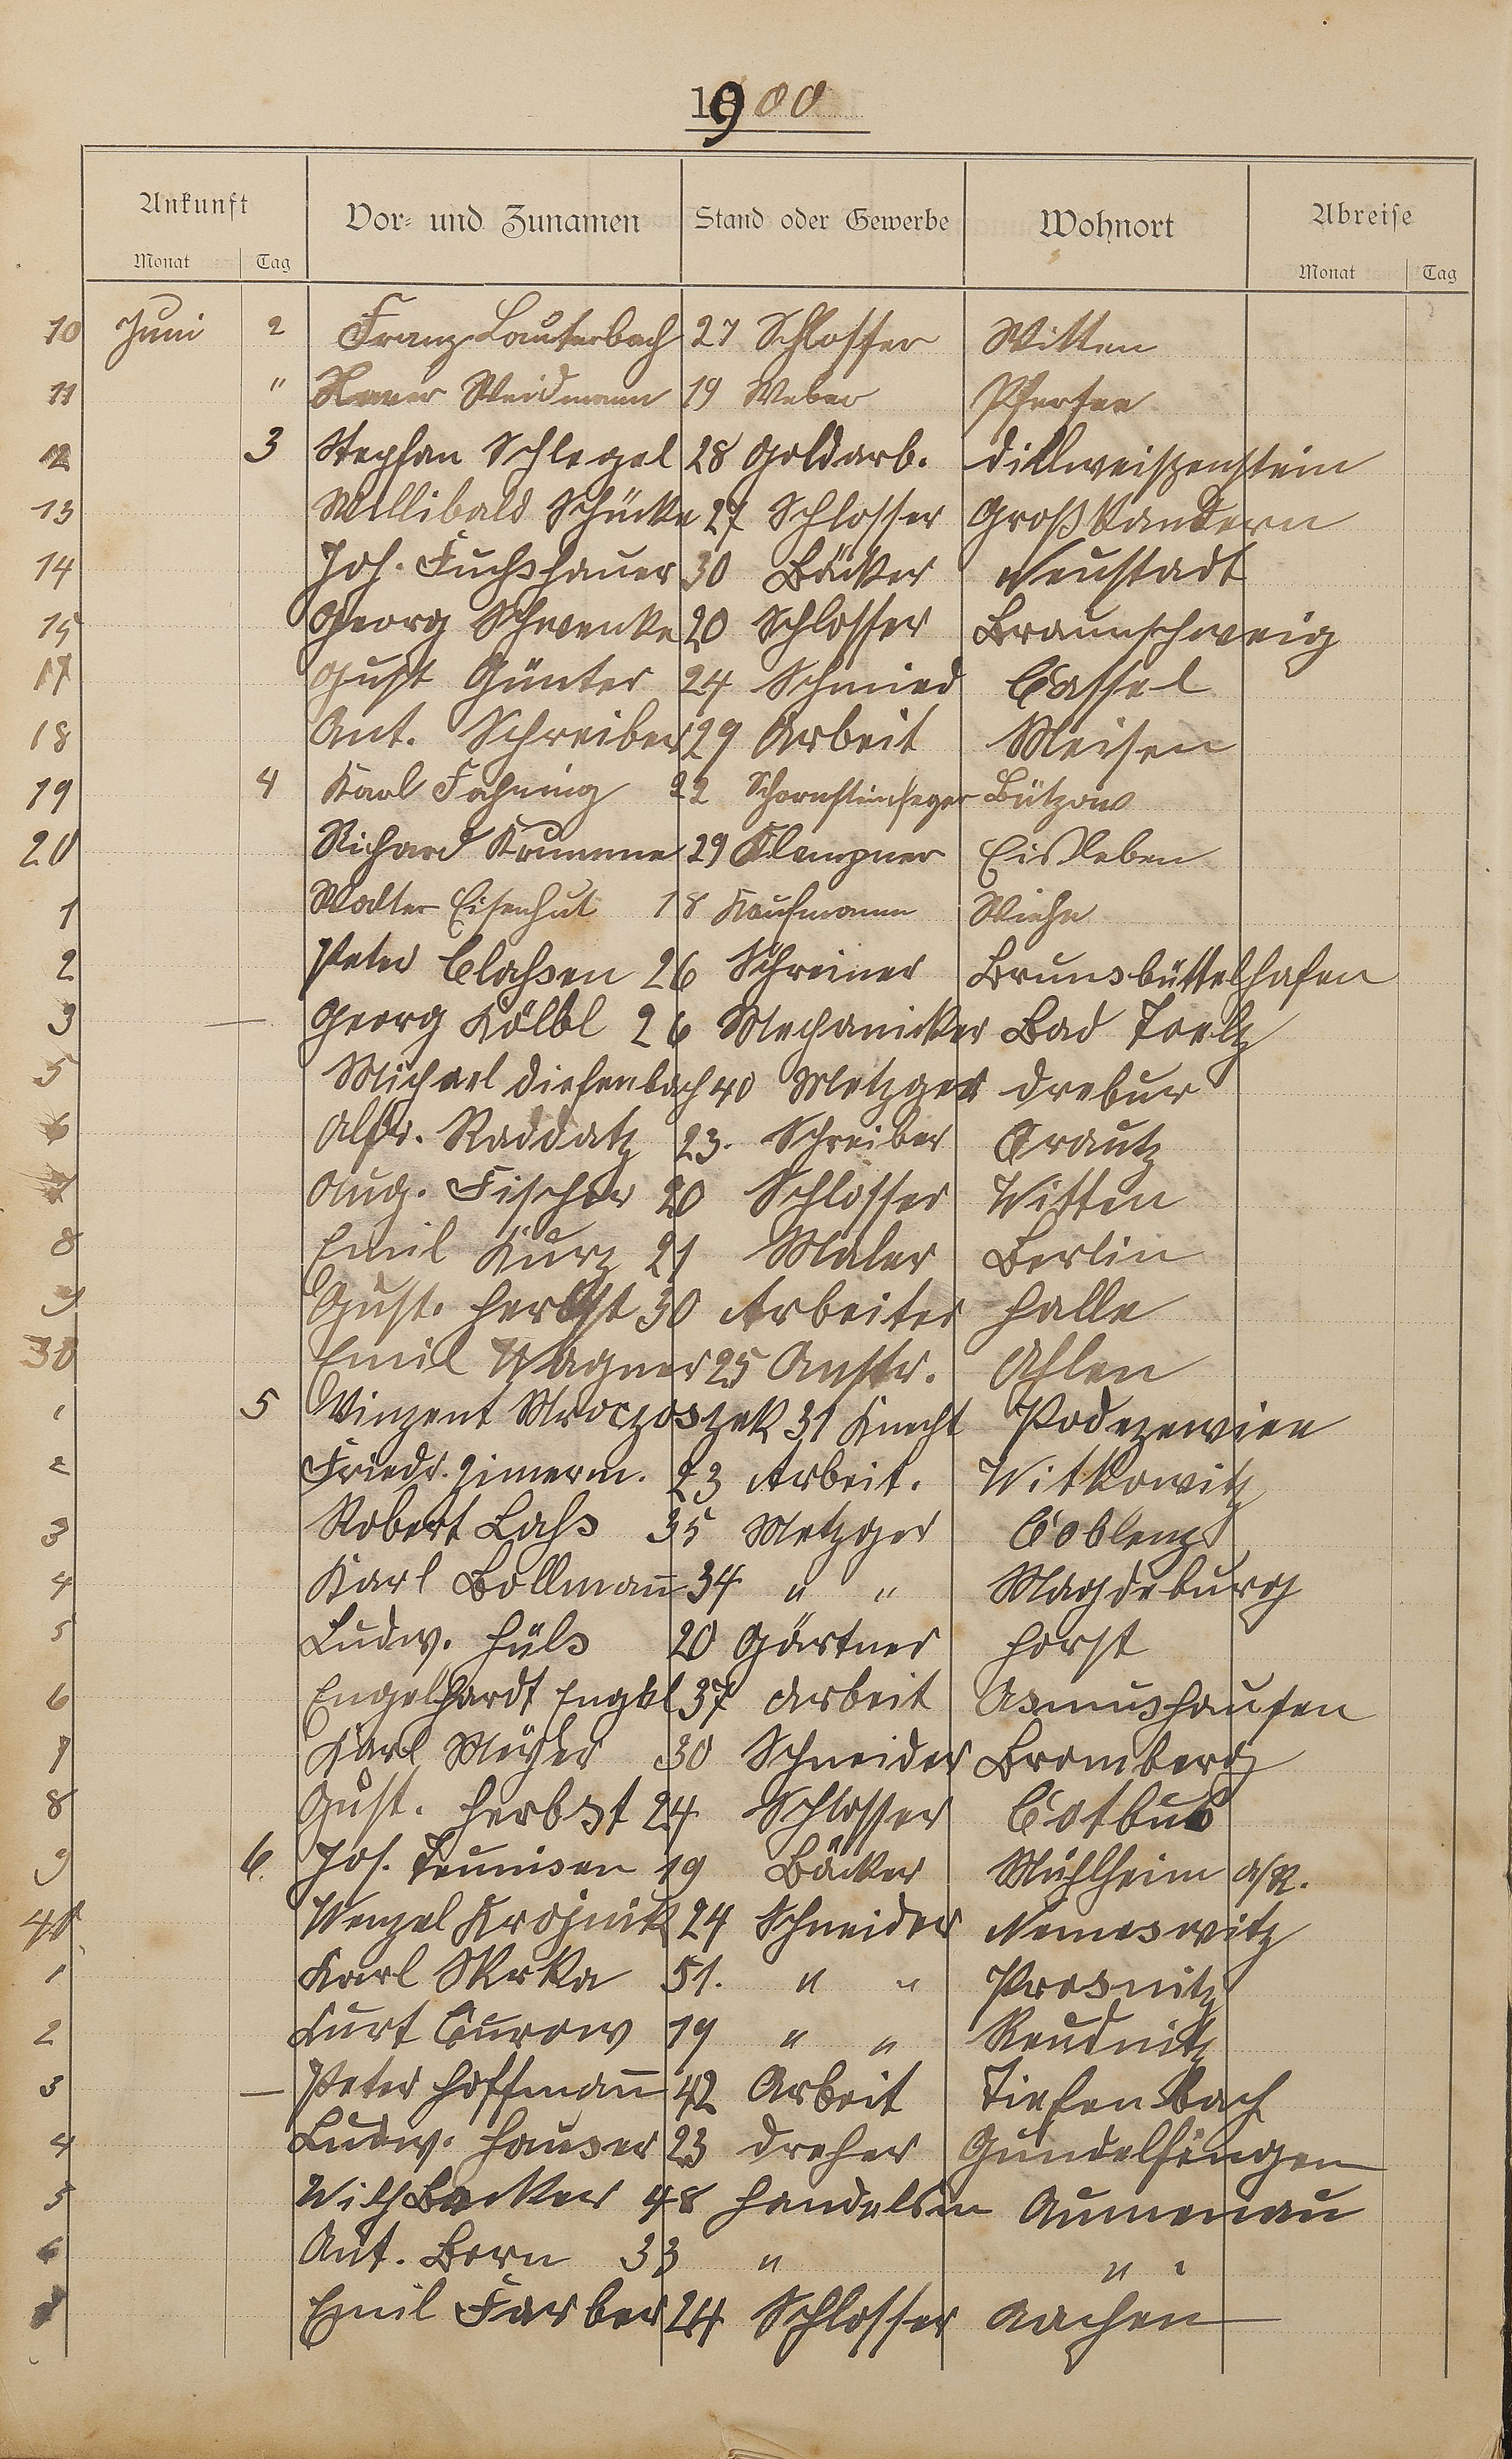 1900
Ankunft Vor- und Zunamen Stand oder Gewerbe Wohnort Abreise
Monat Tag Monat Tag
10 Juni 2 Franz Lauterbach 27 Schlosser Witten
11 " Xaver Weidmann 19 Weber Pfersee
12 3 Stephan Schlegel 28 Goldarb. Dillweißenstein
13 Willibald Schücke 27 Schlosser Großkandern
14 Joh. Fuchshauer 30 Bäcker Neustadt
15 Georg Schwenke 20 Schlosser Braunschweig
17 Gust Günter 24 Schmied Cassel
18 Ant. Schreiber 29 Arbeit Meisen
19 4 Karl Fahning 22 Schornsteinfeger Bützow
20 Richard Krumme 29 Klempner Eisleben
1 Walter Eisenhut 18 Kaufmann Wiehe
2 Peter Clahsen 26 Schreiner Brunsbüttelhafen
3 — Georg Kölbl 26 Mechanicker Bad Toelz
5 Michael Diefenbach 40 Metzger Drebur
6 Alfr. Raddatz 23. Schreiber Grautz
7 Aug. Fischer 20 Schlosser Witten
8 Emil Kurz 21 Maler Berlin
9 Gust. Herbst 30 Arbeiter Halle
30 Emil Wagner 25 Anstr. Ahlen
1 5 Vinzent Mroczoszek 31 Knecht Podezewien
2 Friedr. Zimerm. 23 Arbeit. Witkowitz
3 Robert Lahs 35 Metzger Coblenz
4 Karl Bollmann̅ 34 " " Magdeburg
5 Ludw. Hüls 20 Gärtner Horst
6 Engelhardt Engel 37 Arbeit Asmushausen
7 Karl Meyer 30 Schneider Bromberg
8 Gust. Herbst 24 Schlosser Cotbus
9 6. Jos. Teunisen 19 Bäcker Mühlheim a/R.
40 Wenzel Krojnik 24 Schneider Nemeswitz
1 Karl Skrka 51. " " Prosnitz
2 Kurt Curow 19 " " Reudnitz
3 — Peter Hoffman̅ 42 Arbeit Tiefenbach
4 Ludw. Hauser 23 Dreher Gundelfingen
5 Wilh Becker 48 Handelsm Aumenau
6 Ant. Born 33 " " "
7 Emil Farber 24 Schlosser Aachen